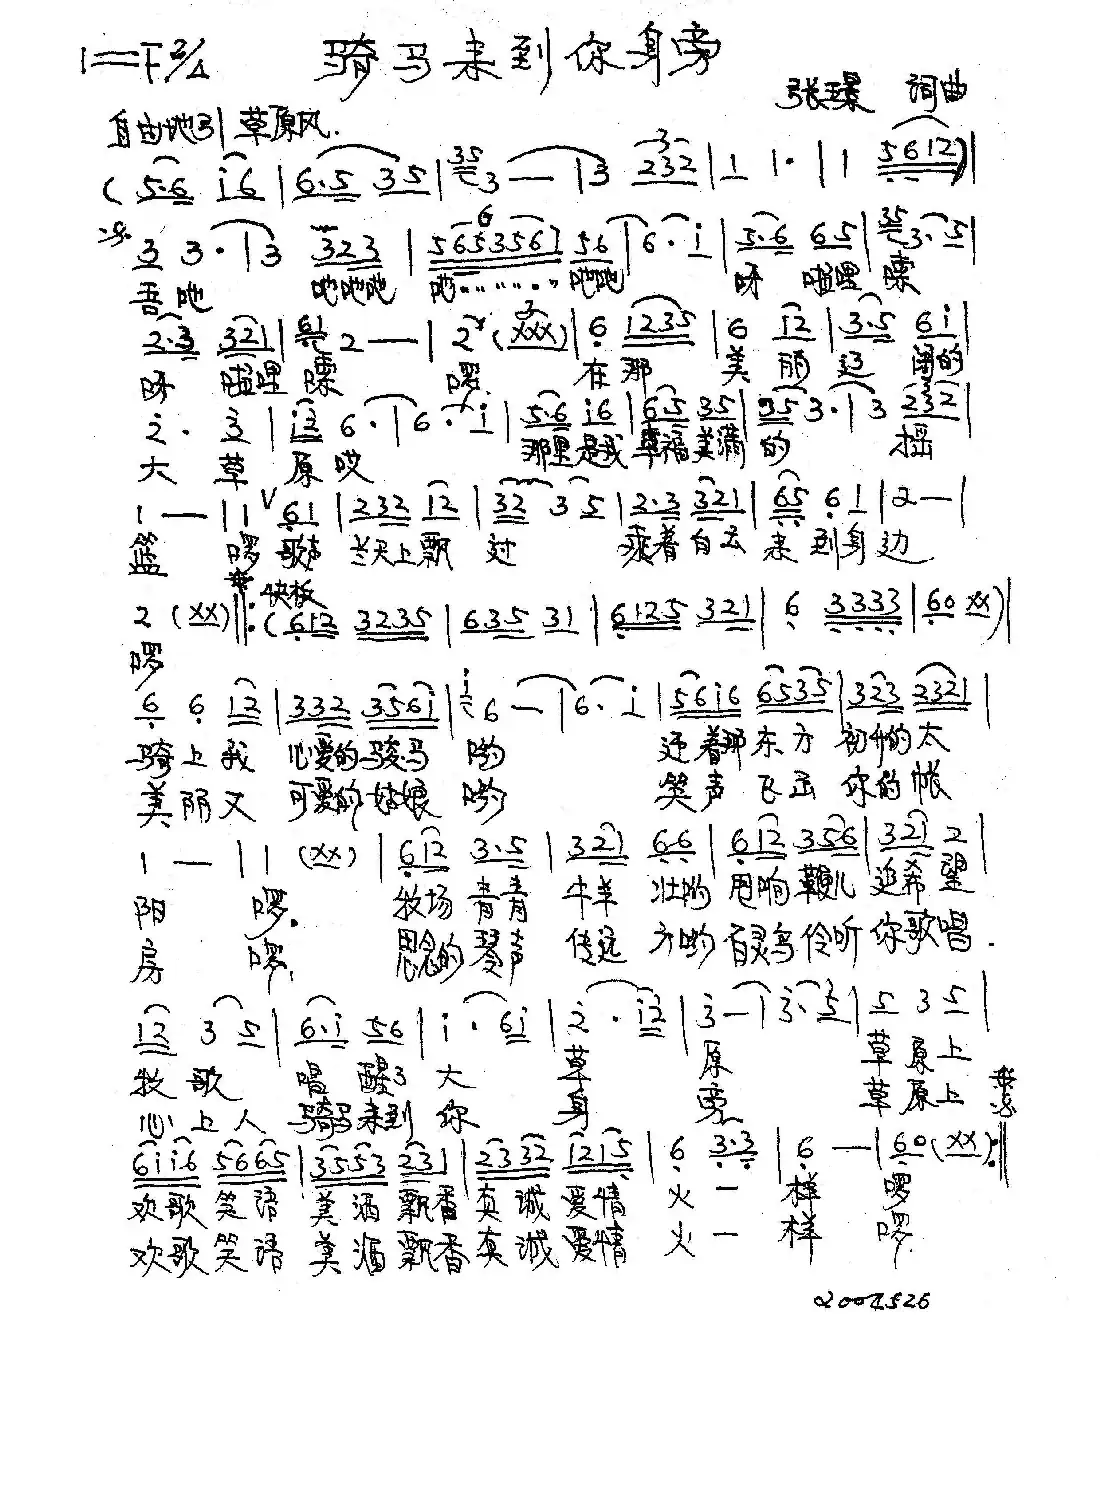 1=F 2/4 骑马来到你身旁
张璟 词曲
自由地 草原风.
(5·6 i6 | 6·5 35 | 35 3 — | 3 232 | 1 1· | 1 5612) |
3 3· | 3 323 | 5653561 56 | 6· i | 5·6 65 | 35 3· 5 |
吾吔 吔吔吔 吔········ 吔吔 呀 嗞哩 嘌
2·3 321 | 61 2 — | 2 (XXX) | 6 1235 | 6 i2 | 3·5 6i |
呀 嗞哩 嘌 啰 在那 美丽辽阔的
2· 3 | i2 6· | 6· i | 5·6 i6 | 6·5 35 | 35 3· | 3 232 |
大草原哎 那里是我幸福美满的 摇
1 — | 1 V 61 | 232 12 | 32 3 5 | 2·3 321 | 65 6 1 | 2 — |
篮 啰 歌声 天上飘过 乘着白云来到身边
2 (XX) ‖: 快板 (612 3235 | 635 31 | 6125 321 | 6 3333 | 60 XX) |
啰
6 6 12 | 332 356i | i 6 — | 6· i | 56i6 6535 | 323 2321 |
骑上我心爱的骏马哟 迎着那东方初升的太
美丽又可爱的姑娘哟 笑声飞出你的帐
1 — | 1 (XX) | 612 3·5 | 321 6·6 | 612 356 | 321 2 |
阳 啰. 牧场青青 牛羊壮哟 甩响鞭儿追希望
房 啰. 思念的琴声 传远方哟 百灵鸟伶听你歌唱.
12 3 5 | 6·i 56 | i· 6i | 2· i2 | 3 — | 3· 5 | 5 3 5 |
牧歌 唱醒了大草原 草原上
心上人 骑马来到你身旁 草原上
6ii6 5665 | 3553 231 | 2332 1215 | 6 3·3 | 6 — | 60 (XX) :‖
欢歌笑语美酒飘香真诚爱情火一样啰
欢歌笑语美酒飘香真诚爱情火一样啰.